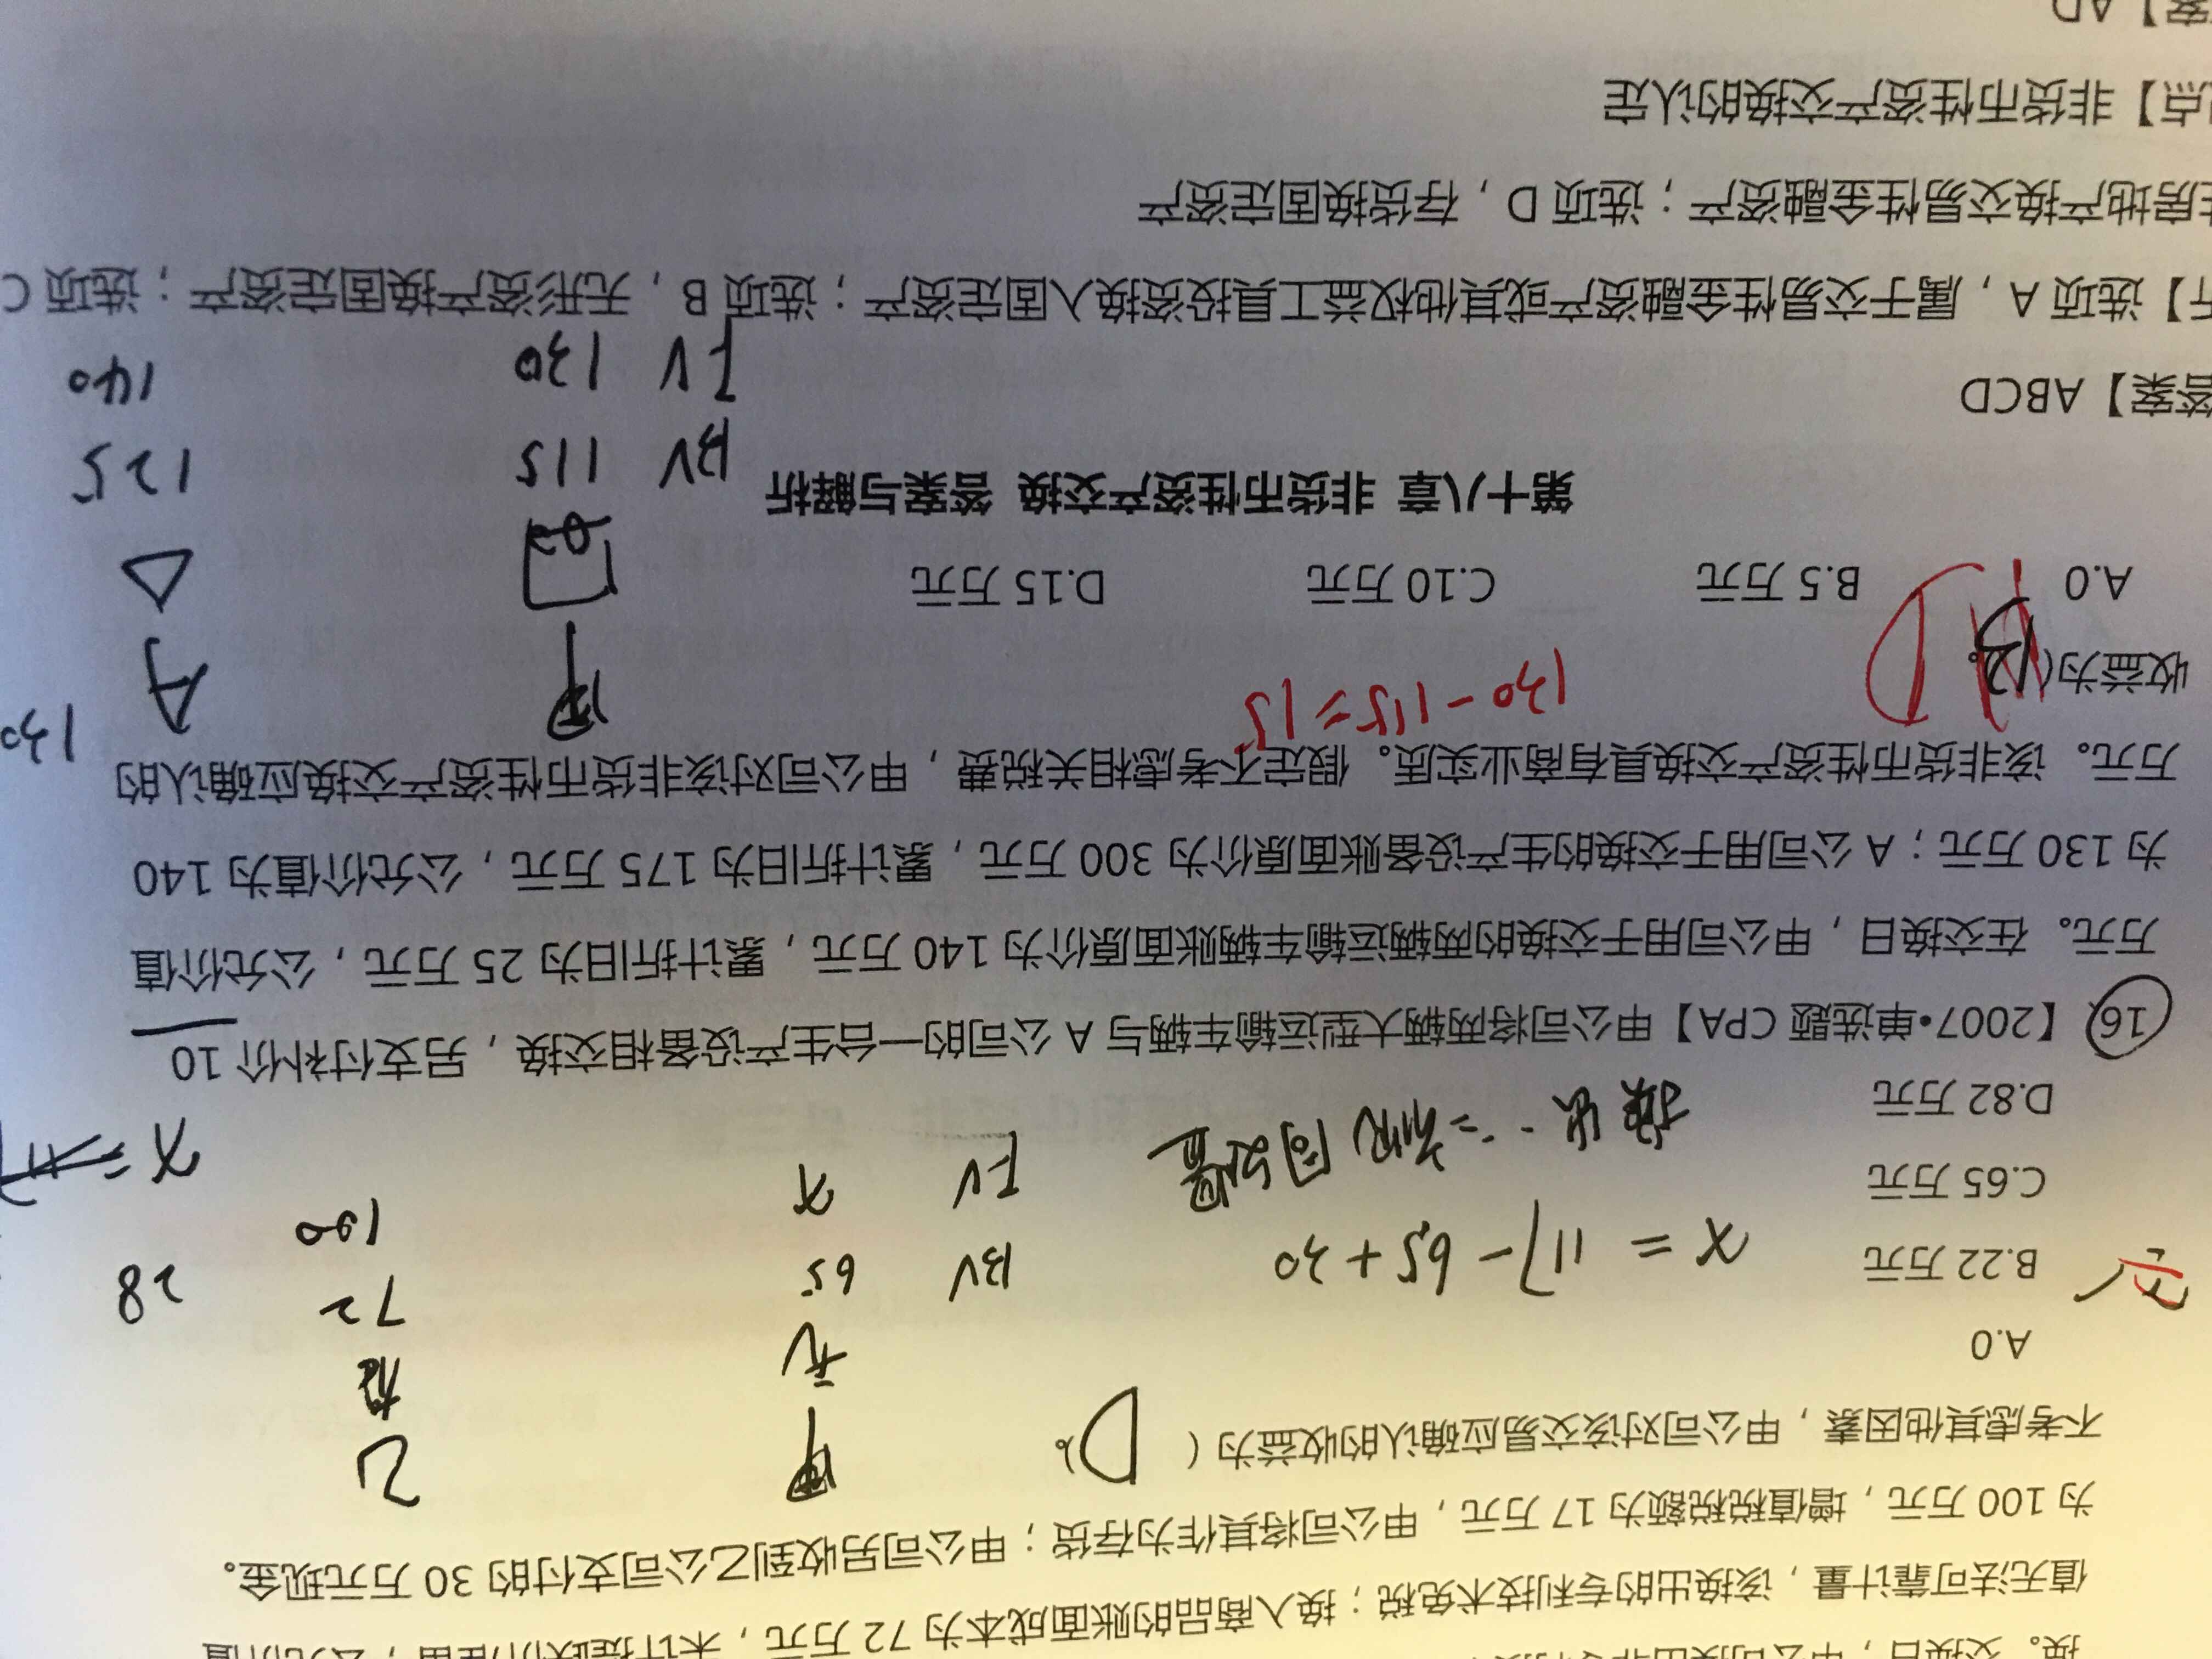 换。交换日，甲公司换出
值无法可靠计量，该换出的专利技术免税；换入商品的账面成本为 72 万元，未计提跌价准备，公允价值
为 100 万元，增值税税额为 17 万元，甲公司将其作为存货；甲公司另收到乙公司支付的 30 万元现金。
不考虑其他因素，甲公司对该交易应确认的收益为（ D ）。
甲 乙
无
A.0
BV 65 72 28
B.22 万元
x = 117 - 65 + 30
FV x 100
C.65 万元
x =
D.82 万元
16 【2007•单选题 CPA】甲公司将两辆大型运输车辆与 A 公司的一台生产设备相交换，另支付补价 10
万元。在交换日，甲公司用于交换的两辆运输车辆账面原价为 140 万元，累计折旧为 25 万元，公允价值
为 130 万元；A 公司用于交换的生产设备账面原价为 300 万元，累计折旧为 175 万元，公允价值为 140
万元。该非货币性资产交换具有商业实质。假定不考虑相关税费，甲公司对该非货币性资产交换应确认的
收益为（ ）。 D 130-115=15 甲 A 130
A.0 B.5 万元 C.10 万元 D.15 万元
第十八章 非货币性资产交换 答案与解析
BV 115 125
答案】ABCD
FV 130 140
】选项 A，属于交易性金融资产或其他权益工具投资换入固定资产；选项 B，无形资产换固定资产；选项 C
房地产换交易性金融资产；选项 D，存货换固定资产
点】非货币性资产交换的认定
案】AD